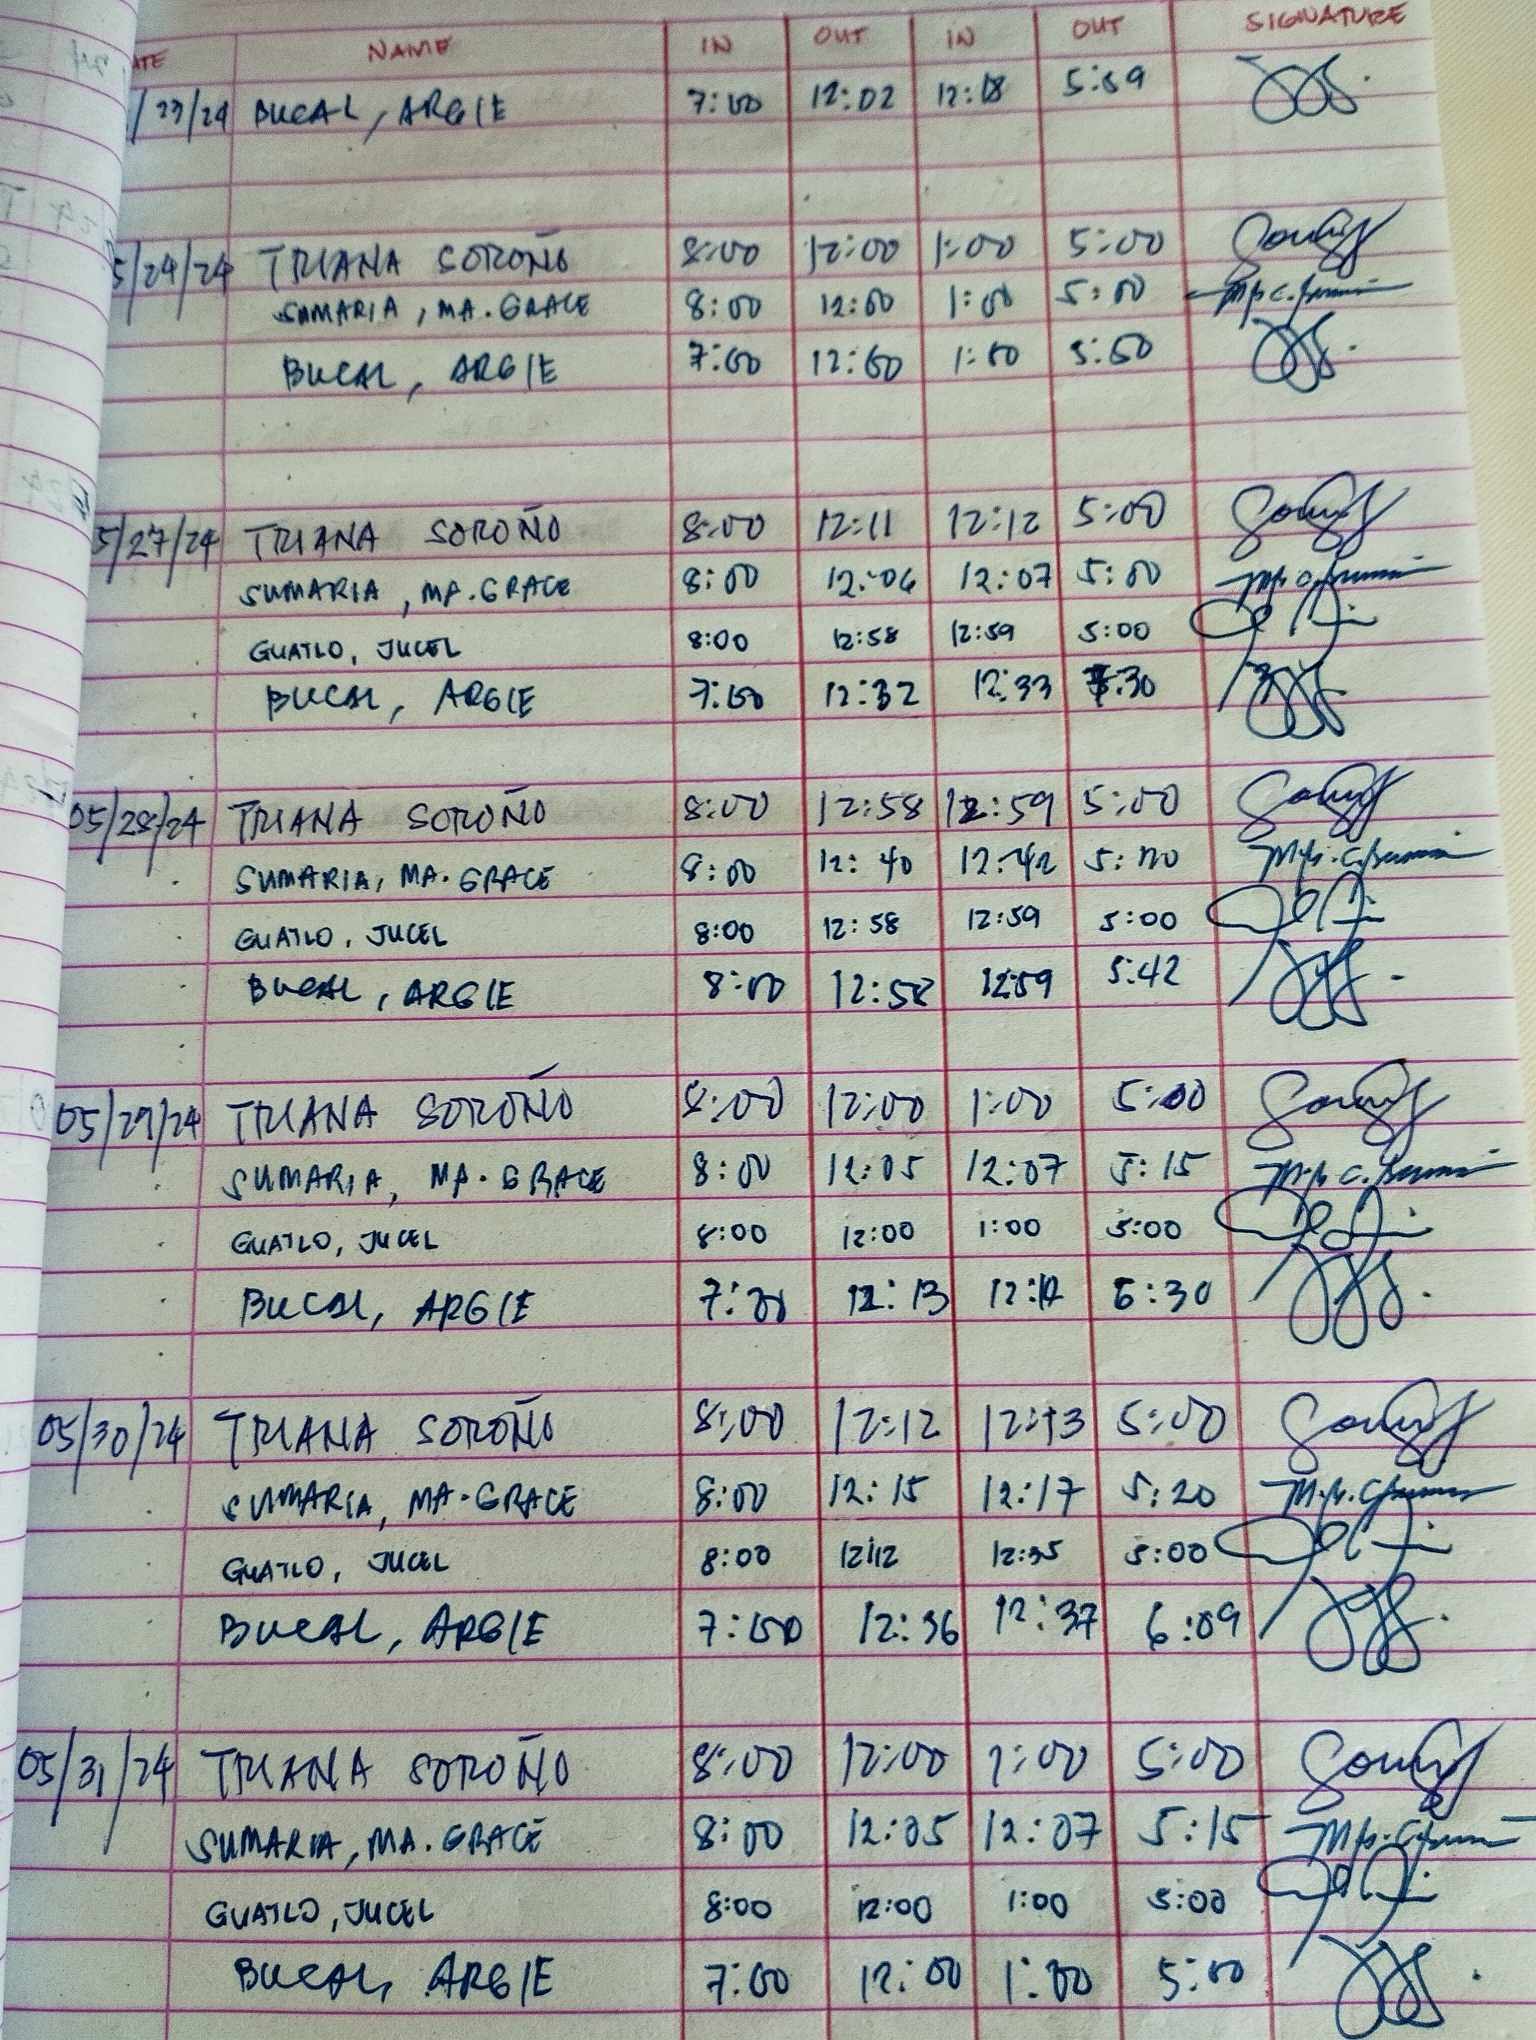 ATE NAME IN OUT IN OUT SIGNATURE
/23/24 BUCAL, ARGIE 7:00 12:02 12:18 5:59
5/24/24 TRIANA SOROÑO 8:00 12:00 1:00 5:00
SUMARIA, MA. GRACE 8:00 12:00 1:00 5:00
BUCAL, ARGIE 7:00 12:00 1:00 5:00
5/27/24 TRIANA SOROÑO 8:00 12:11 12:12 5:00
SUMARIA, MA. GRACE 8:00 12:06 12:07 5:00
GUATLO, JUCEL 8:00 12:58 12:59 5:00
BUCAL, ARGIE 7:00 12:32 12:33 :30
05/28/24 TRIANA SOROÑO 8:00 12:58 12:59 5:00
SUMARIA, MA. GRACE 8:00 12:40 12:42 5:00
GUATLO, JUCEL 8:00 12:58 12:59 5:00
BUCAL, ARGIE 8:00 12:58 12:59 5:42
05/29/24 TRIANA SOROÑO 8:00 12:00 1:00 5:00
SUMARIA, MA. GRACE 8:00 12:05 12:07 5:15
GUATLO, JUCEL 8:00 12:00 1:00 5:00
BUCAL, ARGIE 12:13 12:14 6:30
05/30/24 TRIANA SOROÑO 8:00 12:12 12:13 5:00
SUMARIA, MA. GRACE 8:00 12:15 12:17 5:20
GUATLO, JUCEL 8:00 12:12 12:35 5:00
BUCAL, ARGIE 7:00 12:36 12:37 6:09
05/31/24 TRIANA SOROÑO 8:00 12:00 1:00 5:00
SUMARIA, MA. GRACE 8:00 12:05 12:07 5:15
GUATLO, JUCEL 8:00 12:00 1:00 5:00
BUCAL, ARGIE 7:00 12:00 1:00 5:00